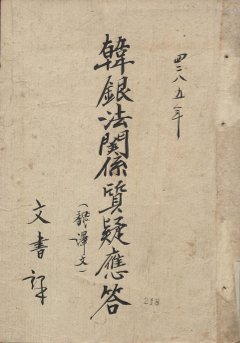 四二八五年
韓銀法關係質疑應答
(飜譯文)
文書課
218